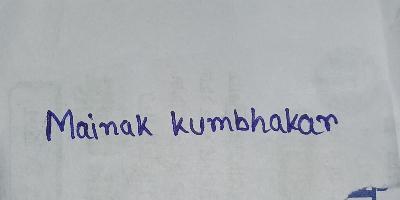 Mainak kumbhakar